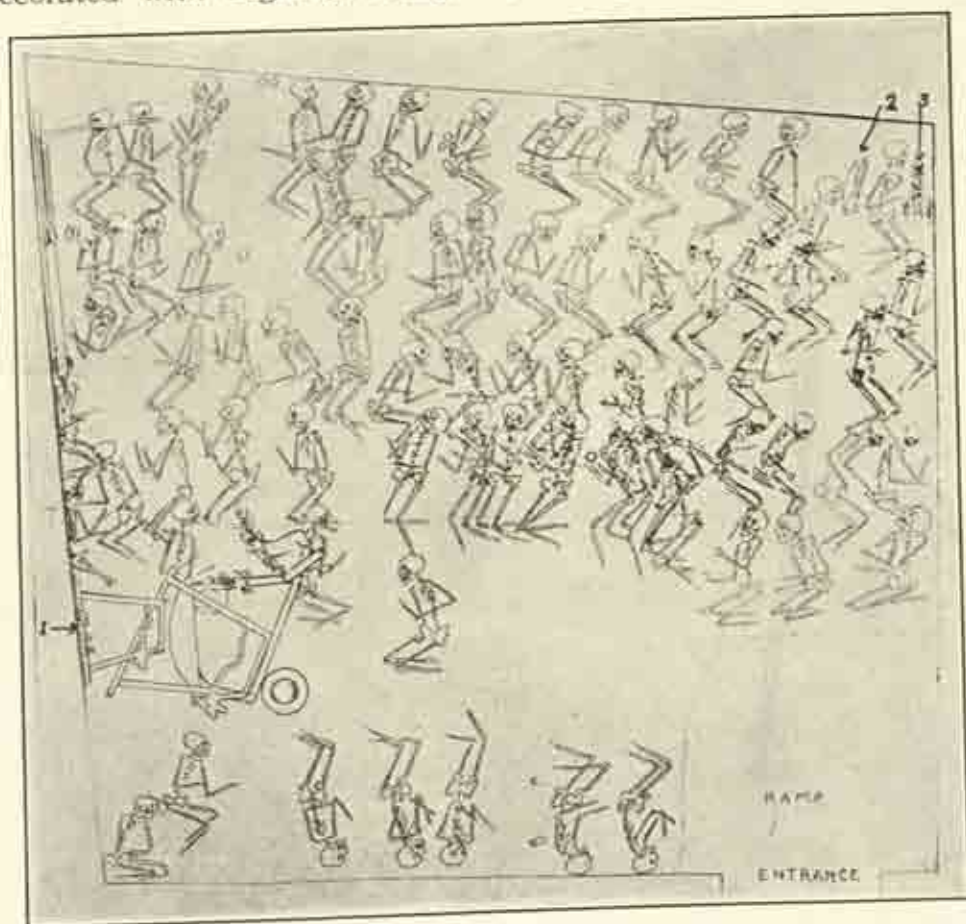 2 3
1
RAMP
ENTRANCE